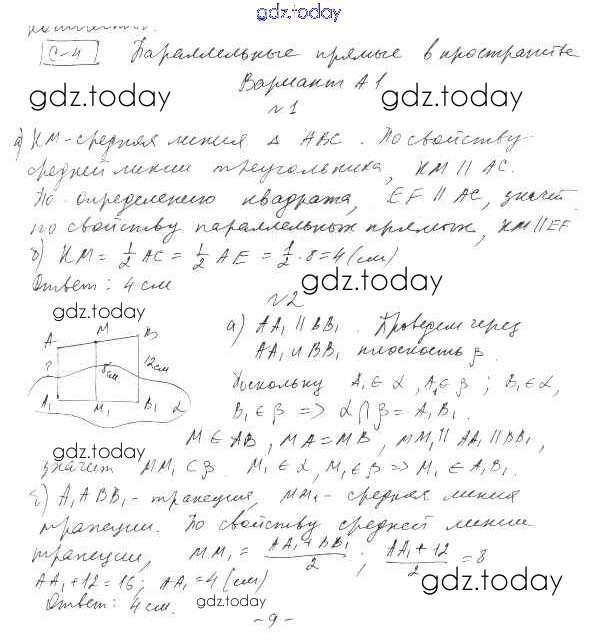 gdz.today
С-4 Параллельные прямые в пространстве
Вариант А1
gdz.today gdz.today
№1
а) КМ-средняя линия Δ ABC. По свойству
средней линии треугольника, КМ || AC.
По определению квадрата, EF || AC, значит
по свойству параллельных прямых, КМ || EF
б) КМ = 1/2 AC = 1/2 AE = 1/2 · 8 = 4 (см)
Ответ: 4 см
gdz.today
№2
gdz.today
а) AA₁ || BB₁. Проведем через
AA₁ и BB₁ плоскость β.
A M B
? 8см 12см
A₁ M₁ B₁ α
Поскольку A₁ ∈ α, A₁ ∈ β; B₁ ∈ α,
B₁ ∈ β => α ∩ β = A₁B₁.
gdz.today
M ∈ AB, MA = MB, MM₁ || AA₁ || BB₁,
значит MM₁ ⊂ β. M₁ ∈ α, M₁ ∈ β => M₁ ∈ A₁B₁.
б) A₁ABB₁ - трапеция, MM₁ - средняя линия
трапеции. По свойству средней линии
трапеции, MM₁ = (AA₁ + BB₁)/2; (AA₁ + 12)/2 = 8
AA₁ + 12 = 16; AA₁ = 4 (см)
Ответ: 4 см.
gdz.today gdz.today
- 9 -